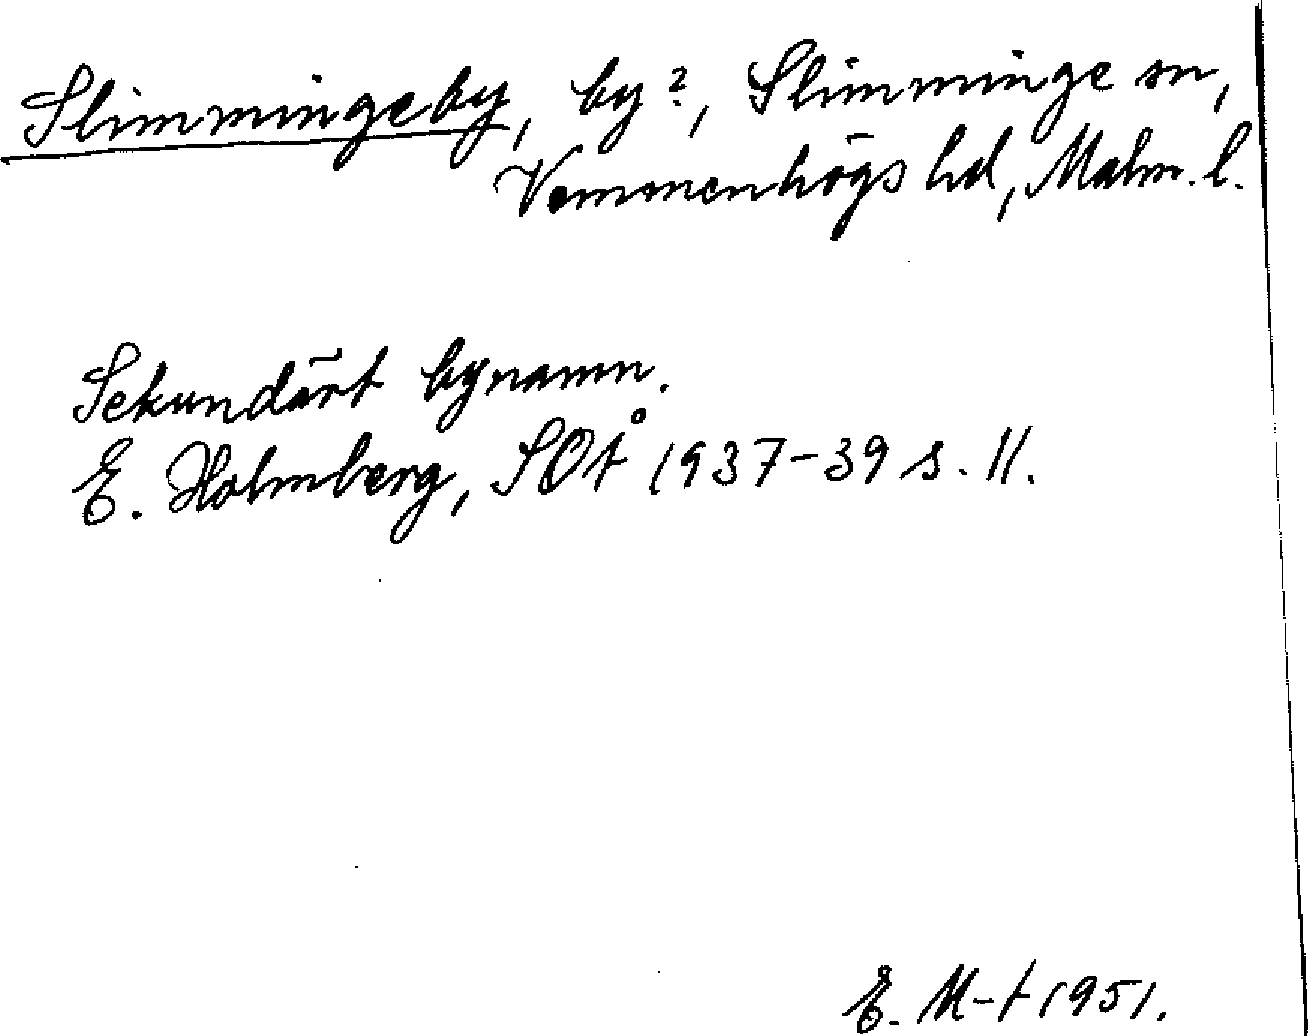 Slimmingeby, by?, Slimminge sn,
Vemmenhögs hd, Malm. l.
Sekundärt bynamn.
E. Holmberg, SOÅ 1937-39 s. 11.
E. M-t 1951.